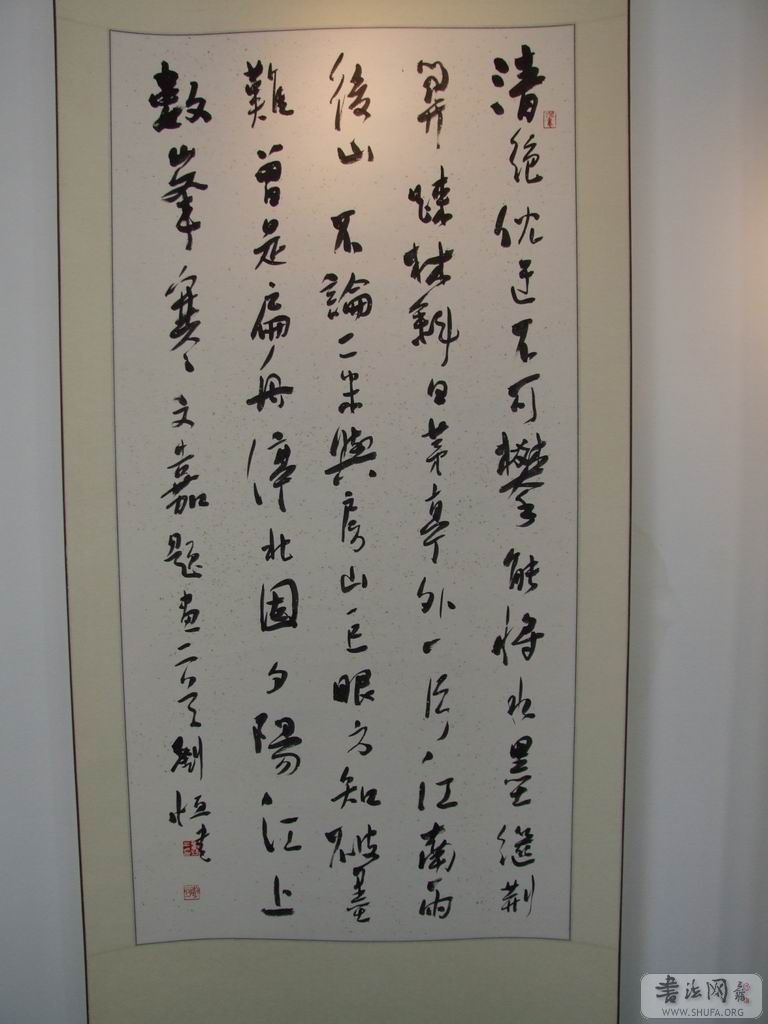 清絶倪迂不可攀能將水墨繼荆
關踈林斜日茅亭外一段江南雨
後山不論二米與房山正眼方知破墨
難曾是扁舟停北固夕陽江上
數峯寒文嘉題畫二首劉恒書
書法网
WWW.SHUFA.ORG